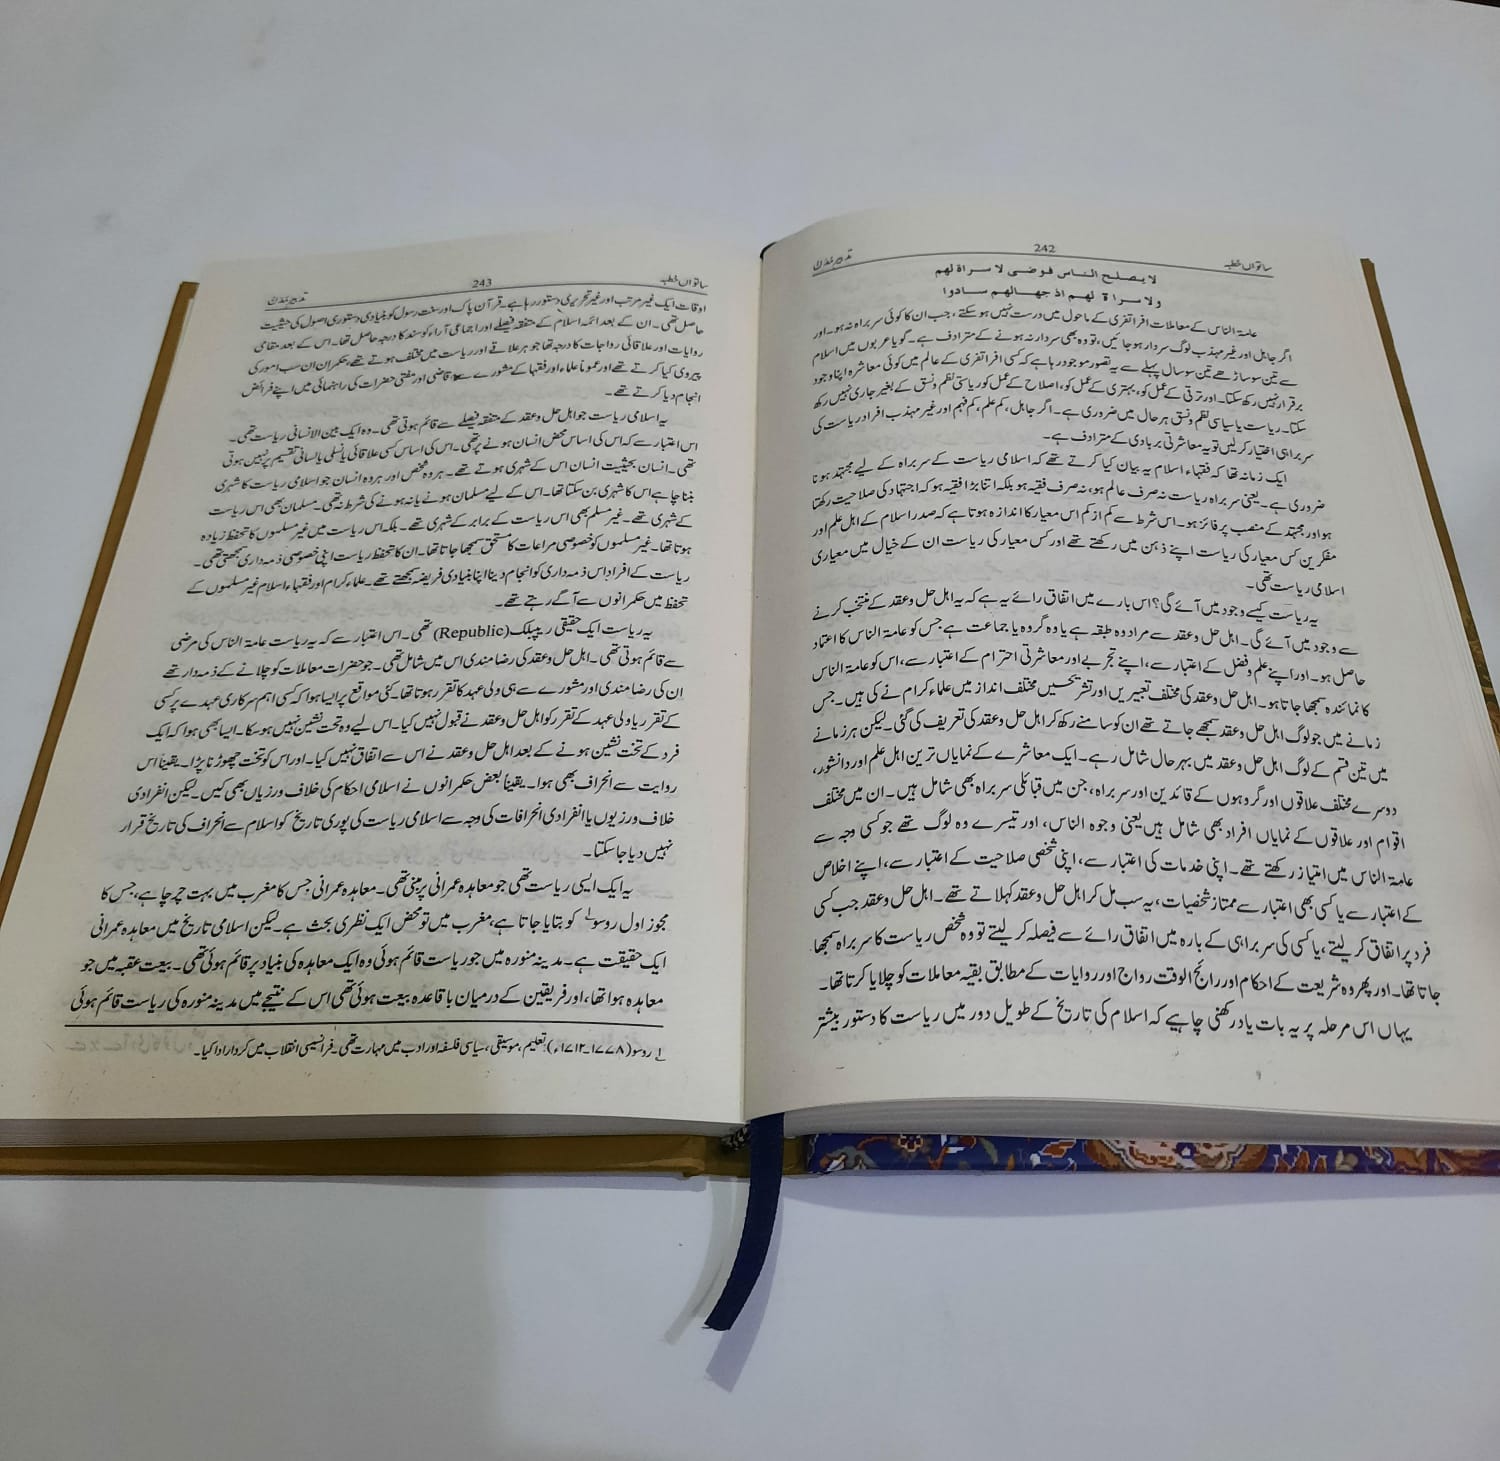 ساتواں خطبہ
242
تدبیر مدن
لا یصلح الناس فوضی لا سراۃ لھم
ولا سراۃ لھم اذ جھالھم سادوا
عامۃ الناس کے معاملات افراتفری کے ماحول میں درست نہیں ہو سکتے، جب ان کا کوئی سربراہ نہ ہو۔ اور
اگر جاہل اور غیر مہذب لوگ سردار ہو جائیں، تو وہ بھی سردار نہ ہونے کے مترادف ہے۔ گویا عربوں میں اسلام
سے تین سو ساڑھے تین سو سال پہلے سے یہ تصور موجود رہا ہے کہ کسی افراتفری کے عالم میں کوئی معاشرہ اپنا وجود
برقرار نہیں رکھ سکتا۔ اور ترقی کے عمل کو، بہتری کے عمل کو، اصلاح کے عمل کو ریاستی نظم و نسق کے بغیر جاری نہیں رکھ
سکتا۔ ریاست یا سیاسی نظم و نسق ہر حال میں ضروری ہے۔ اگر جاہل، کم علم، کم فہم اور غیر مہذب افراد ریاست کی
سربراہی اختیار کر لیں تو یہ معاشرتی بربادی کے مترادف ہے۔
ایک زمانہ تھا کہ فقہاء اسلام یہ بیان کیا کرتے تھے کہ اسلامی ریاست کے سربراہ کے لیے مجتہد ہونا
ضروری ہے۔ یعنی سربراہ ریاست نہ صرف عالم ہو، نہ صرف فقیہ ہو بلکہ اتنا بڑا فقیہ ہو کہ اجتہاد کی صلاحیت رکھتا
ہو اور مجتہد کے منصب پر فائز ہو۔ اس شرط سے کم از کم اس معیار کا اندازہ ہوتا ہے کہ صدر اسلام کے اہل علم اور
مفکرین کس معیار کی ریاست اپنے ذہن میں رکھتے تھے اور کس معیار کی ریاست ان کے خیال میں معیاری
اسلامی ریاست تھی۔
یہ ریاست کیسے وجود میں آئے گی؟ اس بارے میں اتفاق رائے یہ ہے کہ یہ اہل حل و عقد کے منتخب کرنے
سے وجود میں آئے گی۔ اہل حل و عقد سے مراد وہ طبقہ ہے یا وہ گروہ یا جماعت ہے جس کو عامۃ الناس کا اعتماد
حاصل ہو۔ اور اپنے علم و فضل کے اعتبار سے، اپنے تجربے اور معاشرتی احترام کے اعتبار سے، اس کو عامۃ الناس
کا نمائندہ سمجھا جاتا ہو۔ اہل حل و عقد کی مختلف تعبیریں اور تشریحیں مختلف انداز میں علماء کرام نے کی ہیں۔ جس
زمانے میں جو لوگ اہل حل و عقد سمجھے جاتے تھے ان کو سامنے رکھ کر اہل حل و عقد کی تعریف کی گئی۔ لیکن ہر زمانے
میں تین قسم کے لوگ اہل حل و عقد میں بہر حال شامل رہے۔ ایک معاشرے کے نمایاں ترین اہل علم اور دانشور،
دوسرے مختلف علاقوں اور گروہوں کے قائدین اور سربراہ، جن میں قبائلی سربراہ بھی شامل ہیں۔ ان میں مختلف
اقوام اور علاقوں کے نمایاں افراد بھی شامل ہیں یعنی وجوہ الناس، اور تیسرے وہ لوگ تھے جو کسی وجہ سے
عامۃ الناس میں امتیاز رکھتے تھے۔ اپنی خدمات کی اعتبار سے، اپنی شخصی صلاحیت کے اعتبار سے، اپنے اخلاص
کے اعتبار سے یا کسی بھی اعتبار سے ممتاز شخصیات، یہ سب مل کر اہل حل و عقد کہلاتے تھے۔ اہل حل و عقد جب کسی
فرد پر اتفاق کر لیتے، یا کسی کی سربراہی کے بارہ میں اتفاق رائے سے فیصلہ کر لیتے تو وہ شخص ریاست کا سربراہ سمجھا
جاتا تھا۔ اور پھر وہ شریعت کے احکام اور رائج الوقت رواج اور روایات کے مطابق بقیہ معاملات کو چلایا کرتا تھا۔
یہاں اس مرحلہ پر یہ بات یاد رکھنی چاہیے کہ اسلام کی تاریخ کے طویل دور میں ریاست کا دستور بیشتر
ساتواں خطبہ
243
تدبیر مدن
اوقات ایک غیر مرتب اور غیر تحریری دستور رہا ہے۔ قرآن پاک اور سنت رسول کو بنیادی دستوری اصول کی حیثیت
حاصل تھی۔ ان کے بعد ائمہ اسلام کے متفقہ فیصلے اور اجماعی آراء کو سند کا درجہ حاصل تھا۔ اس کے بعد مقامی
روایات اور علاقائی رواجات کا درجہ تھا جو ہر علاقے اور ریاست میں مختلف ہوتے تھے، حکمران ان سب امور کی
پیروی کیا کرتے تھے اور عموماً علماء اور فقہا کے مشورے سے قاضی اور مفتی حضرات کی راہنمائی میں اپنے فرائض
انجام دیا کرتے تھے۔
یہ اسلامی ریاست جو اہل حل و عقد کے متفقہ فیصلے سے قائم ہوتی تھی۔ وہ ایک بین الانسانی ریاست تھی۔
اس اعتبار سے کہ اس کی اساس محض انسان ہونے پر تھی۔ اس کی اساس کسی علاقائی یا نسلی یا لسانی تقسیم پر نہیں ہوتی
تھی۔ انسان بحیثیت انسان اس کے شہری ہوتے تھے۔ ہر وہ شخص اور ہر وہ انسان جو اسلامی ریاست کا شہری
بننا چاہے اس کا شہری بن سکتا تھا۔ اس کے لیے مسلمان ہونے یا نہ ہونے کی شرط نہ تھی۔ مسلمان بھی اس ریاست
کے شہری تھے۔ غیر مسلم بھی اس ریاست کے برابر کے شہری تھے۔ بلکہ اس ریاست میں غیر مسلموں کا تحفظ زیادہ
ہوتا تھا۔ غیر مسلموں کو خصوصی مراعات کا مستحق سمجھا جاتا تھا۔ ان کا تحفظ ریاست اپنی خصوصی ذمہ داری سمجھتی تھی۔
ریاست کے افراد اس ذمہ داری کو انجام دینا اپنا بنیادی فریضہ سمجھتے تھے۔ علماء کرام اور فقہاء اسلام غیر مسلموں کے
تحفظ میں حکمرانوں سے آگے رہتے تھے۔
یہ ریاست ایک حقیقی ریپبلک (Republic) تھی۔ اس اعتبار سے کہ یہ ریاست عامۃ الناس کی مرضی
سے قائم ہوتی تھی۔ اہل حل و عقد کی رضا مندی اس میں شامل تھی۔ جو حضرات معاملات کو چلانے کے ذمہ دار تھے
ان کی رضا مندی اور مشورے سے ہی ولی عہد کا تقرر ہوتا تھا۔ کئی مواقع پر ایسا ہوا کہ کسی اہم سرکاری عہدے پر کسی
کے تقرر یا ولی عہد کے تقرر کو اہل حل و عقد نے قبول نہیں کیا۔ اس لیے وہ تخت نشین نہیں ہو سکا۔ ایسا بھی ہوا کہ ایک
فرد کے تخت نشین ہونے کے بعد اہل حل و عقد نے اس سے اتفاق نہیں کیا۔ اور اس کو تخت چھوڑنا پڑا۔ یقیناً اس
روایت سے انحراف بھی ہوا۔ یقیناً بعض حکمرانوں نے اسلامی احکام کی خلاف ورزیاں بھی کیں۔ لیکن انفرادی
خلاف ورزیوں یا انفرادی انحرافات کی وجہ سے اسلامی ریاست کی پوری تاریخ کو اسلام سے انحراف کی تاریخ قرار
نہیں دیا جا سکتا۔
یہ ایک ایسی ریاست تھی جو معاہدہ عمرانی پر مبنی تھی۔ معاہدہ عمرانی جس کا مغرب میں بہت چرچا ہے، جس کا
مجوز اول روسو۱ کو بتایا جاتا ہے، مغرب میں تو محض ایک نظری بحث ہے۔ لیکن اسلامی تاریخ میں معاہدہ عمرانی
ایک حقیقت ہے۔ مدینہ منورہ میں جو ریاست قائم ہوئی وہ ایک معاہدہ کی بنیاد پر قائم ہوئی تھی۔ بیعت عقبہ میں جو
معاہدہ ہوا تھا، اور فریقین کے درمیان باقاعدہ بیعت ہوئی تھی اس کے نتیجے میں مدینہ منورہ کی ریاست قائم ہوئی
۱ روسو (۱۷۷۸۔۱۷۱۲ء): تعلیم، موسیقی، سیاسی فلسفہ اور ادب میں مہارت تھی۔ فرانسیسی انقلاب میں کردار ادا کیا۔